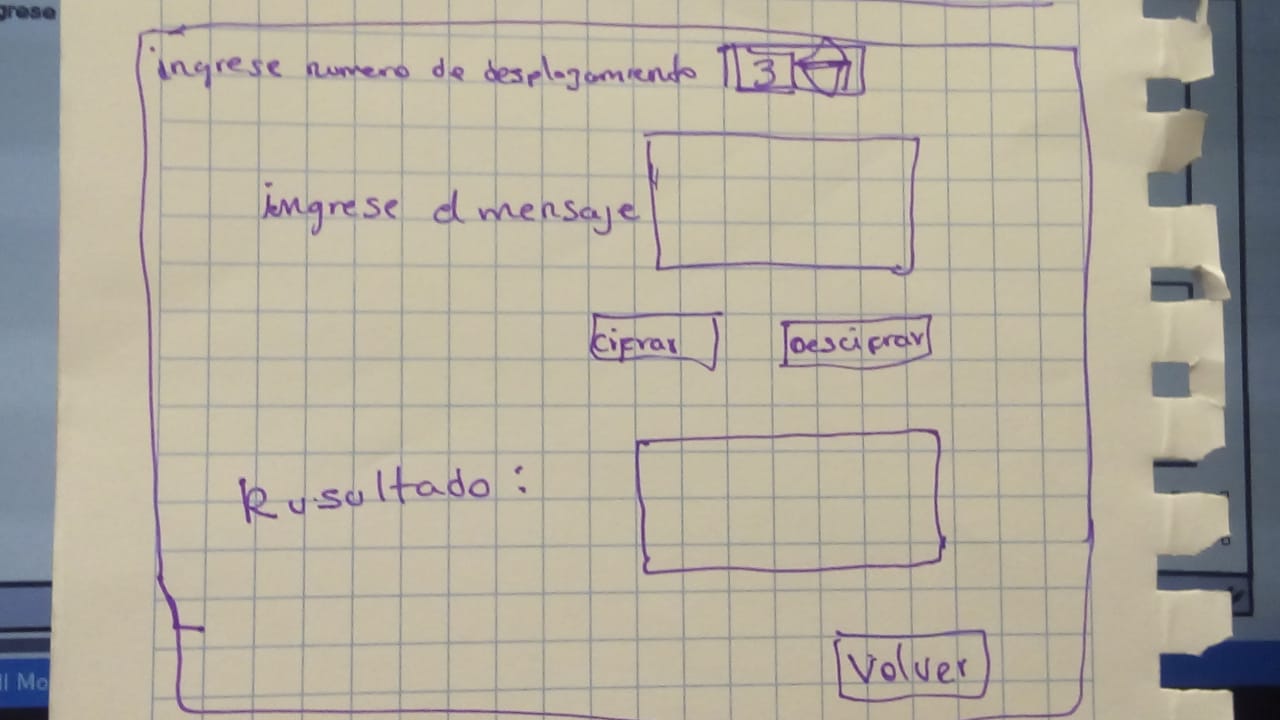 grese
ingrese numero de desplazamiendo 3
ingrese el mensaje
Cifrar Descifrar
Resultado:
Volver
ll Mo